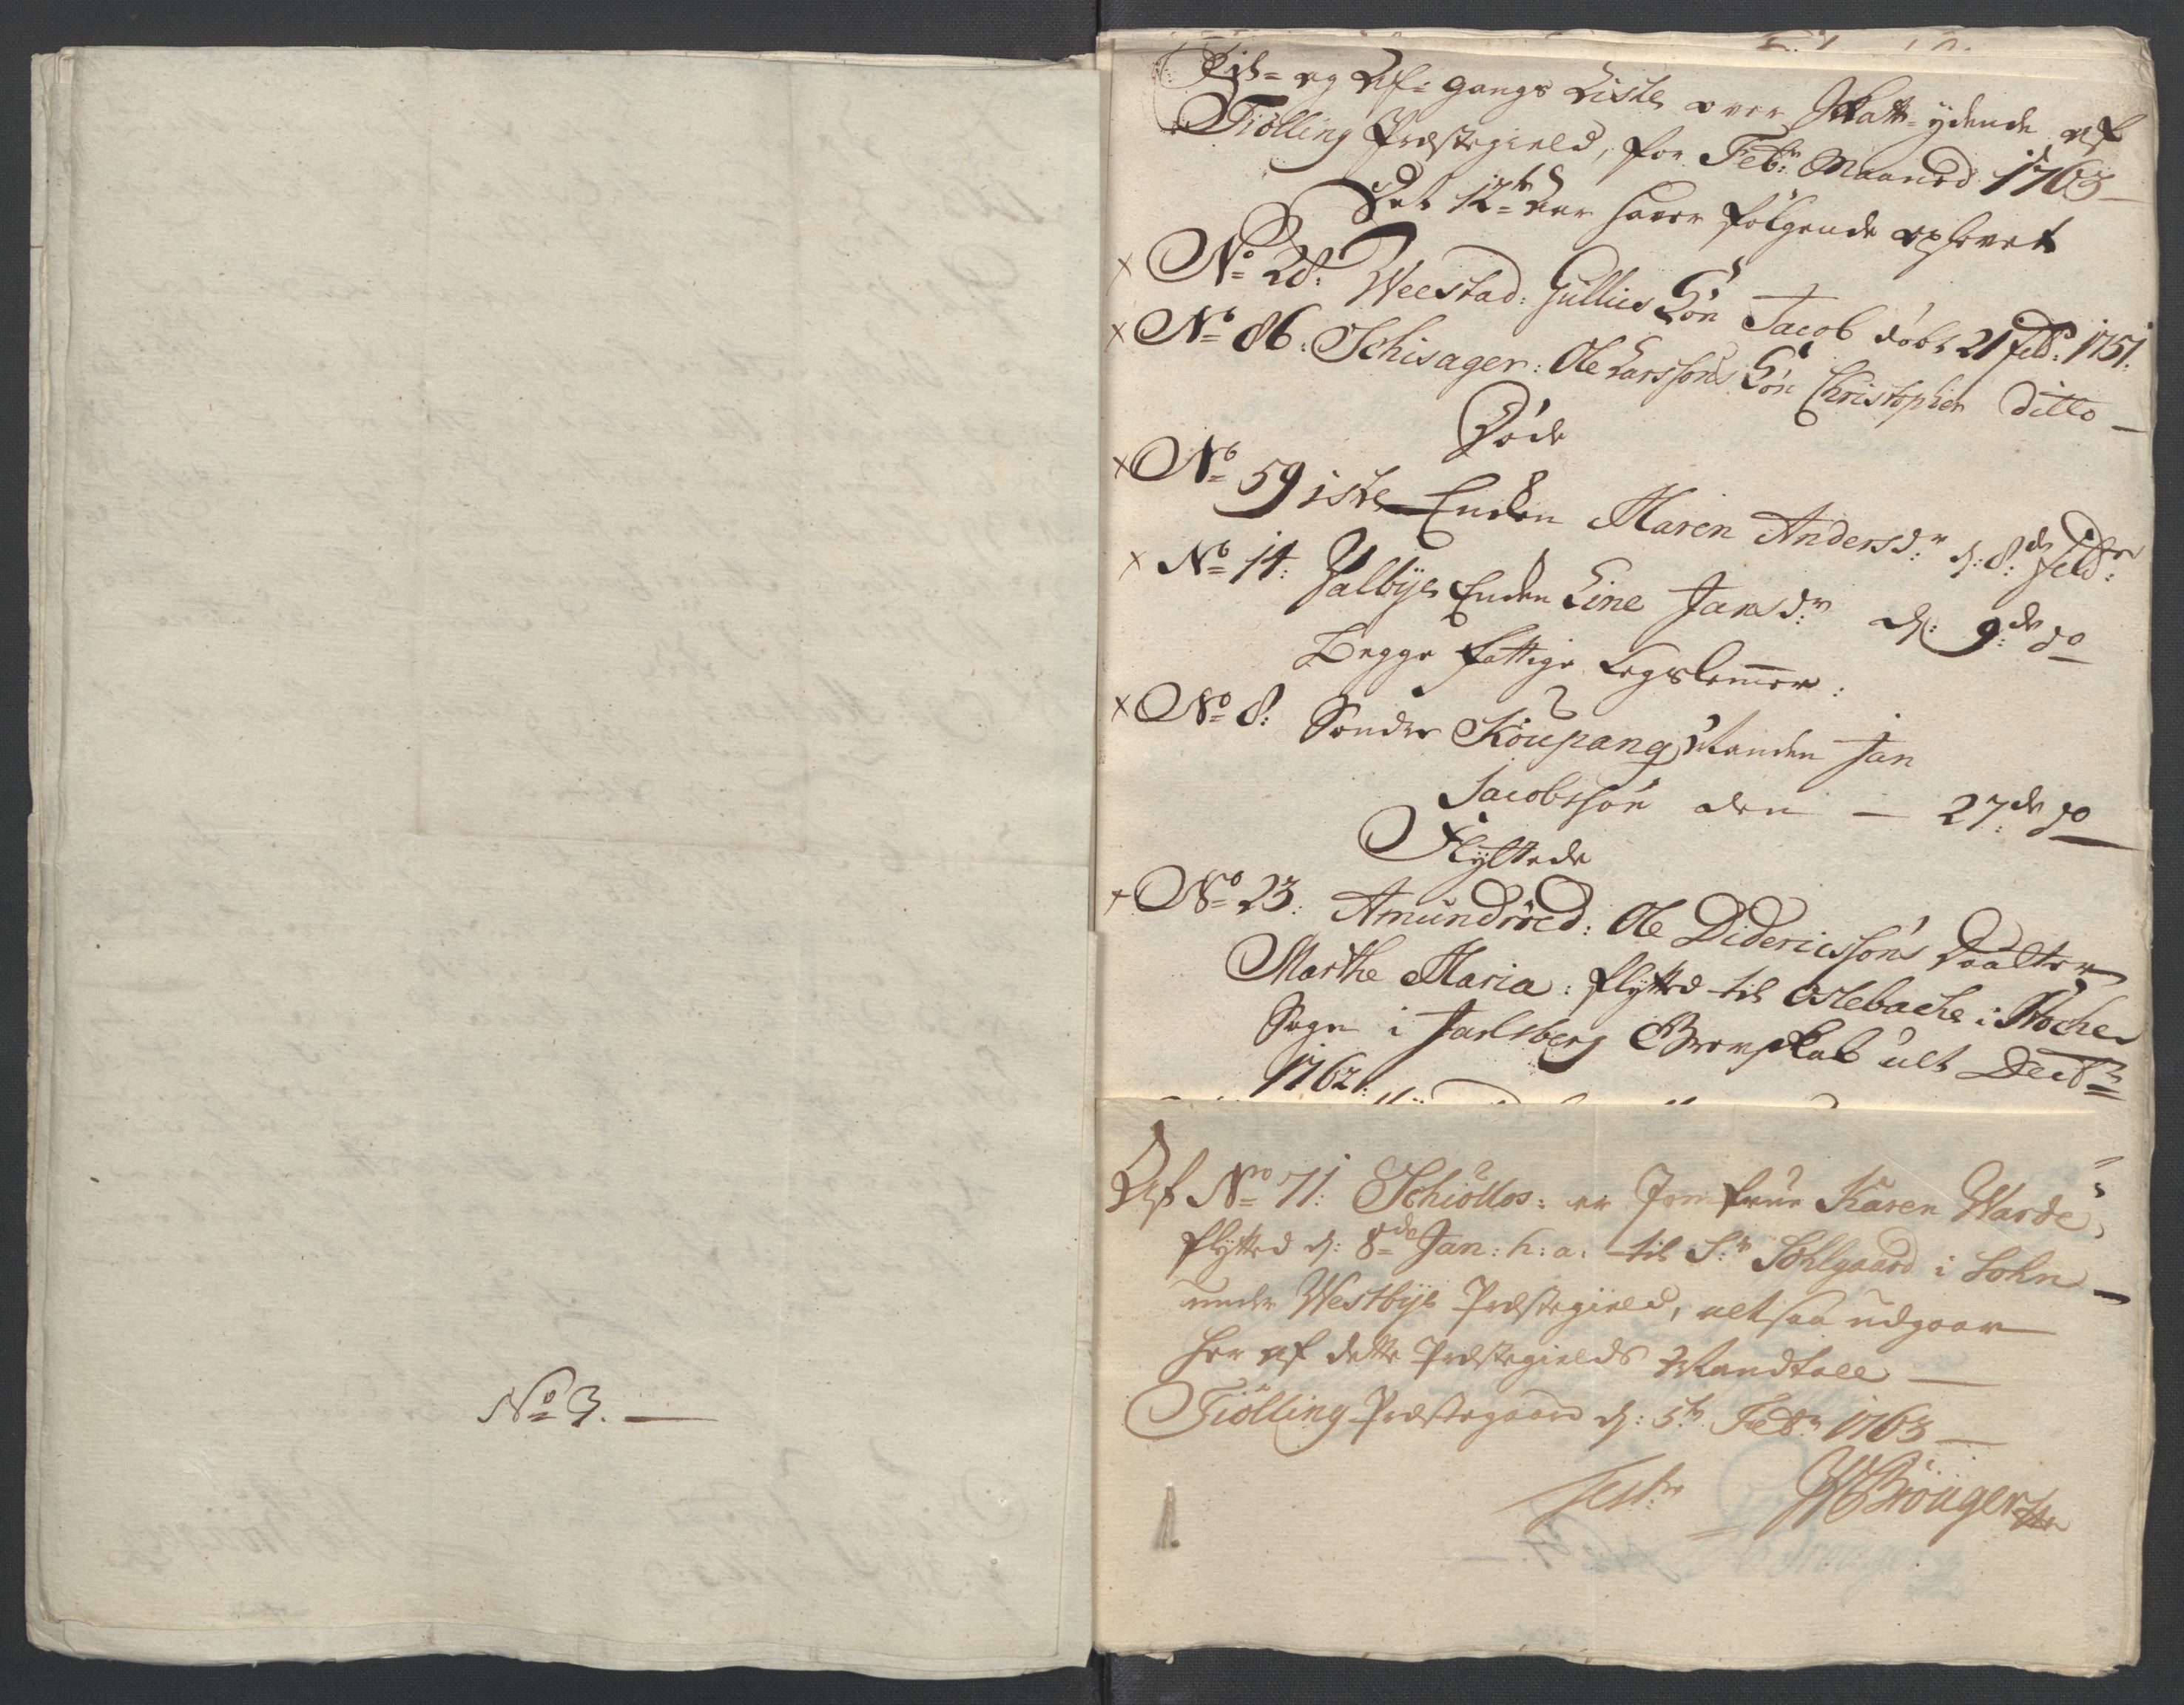 No 3.
Til- og Af-gangs Liste over Skatt-ydende af
Tiølling Præstegield, for Febr: Maaned 1763
Det 12te Aar haver følgende opfyldt
No 28. Weestad: Gullics Søn Jacob døbt 21 Feb: 1751.
No 86: Schisager: Ole Larssøns Søn Christopher ditto
Døde
No 59 iste Enken Maren Andersdr d: 8de Febr:
No 14: Halbye Enken Line Jansdr d: 9de do
Begge fattige Legslemmer:
No 8: Sønder Koupang Manden Jan
Jacobssøn den 27de do
Flyttede
No 23: Amundrød: Ole Didericssøns Daatter
Marthe Maria: flytted til Oslebache i Stoche
Sogn i Jarlsberg Grevskab ult Decbr
1762:
Af No 71: Schiøllos: er Jomfrue Karen Warde,
flytted d: 8de Jan: h: a: til Sr Sohlgaard i Sohn
under Westbye Præstegield, altsaa udgaar
her af dette Præstegields Mandtall
Tiølling Præstegaard d: 5te Febr 1763
test: